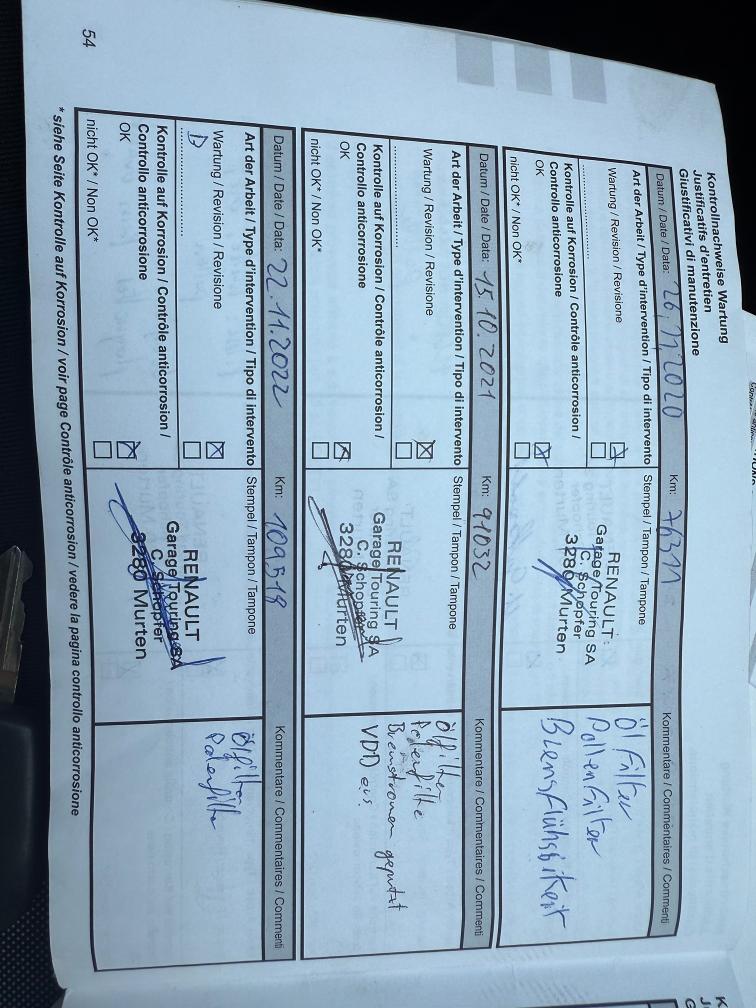 Kontrollnachweise Wartung
Justificatifs d'entretien
Giustificativi di manutenzione
Datum / Date / Data: 26.11.2020 Km: 76311 Kommentare / Commentaires / Commenti
Art der Arbeit / Type d'intervention / Tipo di intervento Stempel / Tampon / Tampone
Wartung / Revision / Revisione
Kontrolle auf Korrosion / Contrôle anticorrosion /
Controllo anticorrosione
OK
nicht OK* / Non OK*
RENAULT
Garage Touring SA
C. Schopfer
3280 Murten
Öl Filter
Pollen Filter
Bremsflühsikeit
Datum / Date / Data: 15.10.2021 Km: 91032 Kommentare / Commentaires / Commenti
Art der Arbeit / Type d'intervention / Tipo di intervento Stempel / Tampon / Tampone
Wartung / Revision / Revisione
Kontrolle auf Korrosion / Contrôle anticorrosion /
Controllo anticorrosione
OK
nicht OK* / Non OK*
RENAULT
Garage Touring SA
C. Schopfer
3280 Murten
Ölfilter
geputzt
Datum / Date / Data: 22.11.2022 Km: 109518 Kommentare / Commentaires / Commenti
Art der Arbeit / Type d'intervention / Tipo di intervento Stempel / Tampon / Tampone
Wartung / Revision / Revisione
Kontrolle auf Korrosion / Contrôle anticorrosion /
Controllo anticorrosione
OK
nicht OK* / Non OK*
RENAULT
Garage Touring SA
C. Schopfer
3280 Murten
Ölfilter
* siehe Seite Kontrolle auf Korrosion / voir page Contrôle anticorrosion / vedere la pagina controllo anticorrosione
54